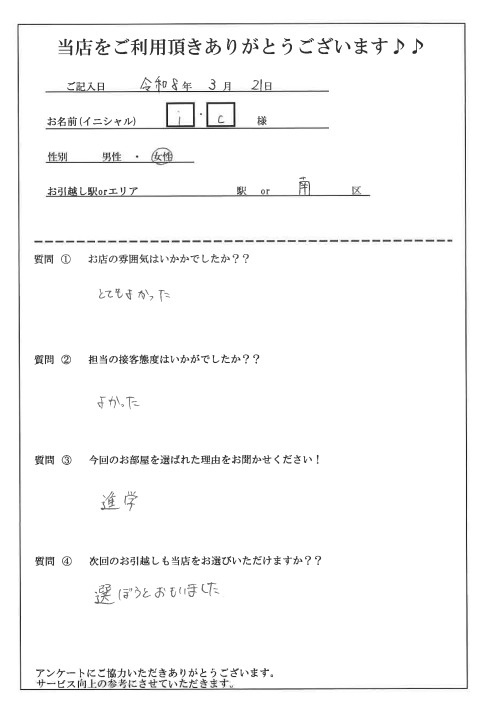 当店をご利用頂きありがとうございます♪♪
ご記入日 令和8年 3月 21日
お名前(イニシャル) i ・ c 様
性別 男性 ・ 女性
お引越し駅orエリア 駅 or 南 区
質問 ① お店の雰囲気はいかかでしたか??
とてもよかった
質問 ② 担当の接客態度はいかがでしたか??
よかった
質問 ③ 今回のお部屋を選ばれた理由をお聞かせください!
進学
質問 ④ 次回のお引越しも当店をお選びいただけますか??
選ぼうとおもいました
アンケートにご協力いただきありがとうございます。
サービス向上の参考にさせていただきます。